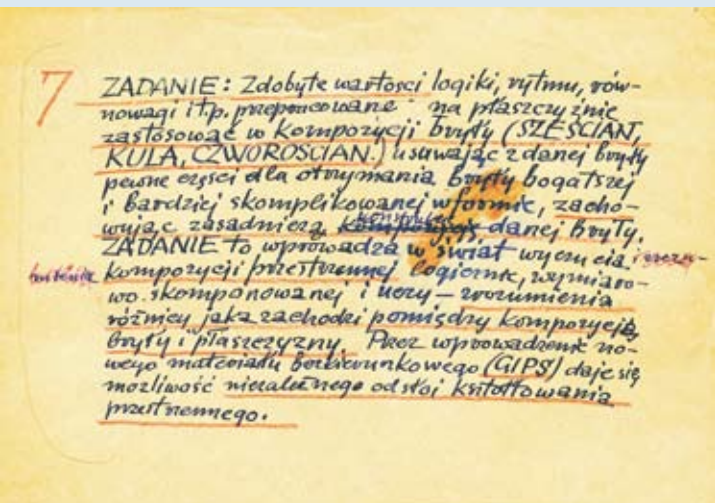 7 ZADANIE: Zdobyte wartości logiki, rytmu, rów-
nowagi i t.p. przepracowane na płaszczyźnie
zastosować w kompozycji bryły (SZEŚCIAN,
KULA, CZWOROŚCIAN.) usuwając z danej bryły
pewne części dla otrzymania bryły bogatszej
i bardziej skomplikowanej w formie, zacho-
wując zasadniczą konstrukcję danej bryły.
ZADANIE to wprowadza w świat wyczucia i
kompozycji przestrzennej logicznie, wymiaro-
wo skomponowanej i uczy – zrozumienia
różnicy jaka zachodzi pomiędzy kompozycją
bryły i płaszczyzny. Przez wprowadzenie no-
wego materiału bezkierunkowego (GIPS) daje się
możliwość niezależnego od słoi kształtowania
przestrzennego.